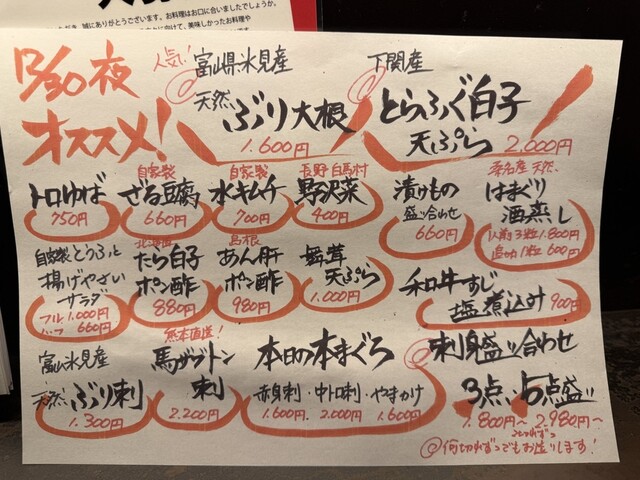 誠にありがとうございます。お料理はお口に合いましたでしょうか。
に向けて、美味しかったお料理や
12/30夜
オススメ!
人気!
富山県氷見産
天然ぶり大根
1.600円
下関産
とらふぐ白子
天ぷら
2.000円
トロゆば
750円
自家製
ざる豆腐
660円
自家製
水キムチ
700円
長野 白馬村
野沢菜
400円
漬けもの
盛り合わせ
660円
桑名産 天然
はまぐり
酒蒸し
1人前3粒1.800円
追加1粒600円
自家製とうふと
揚げやさい
サラダ
フル1.000円
ハーフ660円
北海道
たら白子
ポン酢
880円
島根
あん肝
ポン酢
980円
舞茸
天ぷら
1.000円
和牛すじ
塩煮込み
900円
富山氷見産
天然ぶり刺
1.300円
熊本直送!
馬ザブトン
刺
2.200円
本日の本まぐろ
赤身刺・中トロ刺・やまかけ
1.600円 2.000円 1.600円
刺身盛り合わせ
3点、5点盛り
1.800円〜 2.980円〜
2切れずつ
@何切れずつでもお造りします!